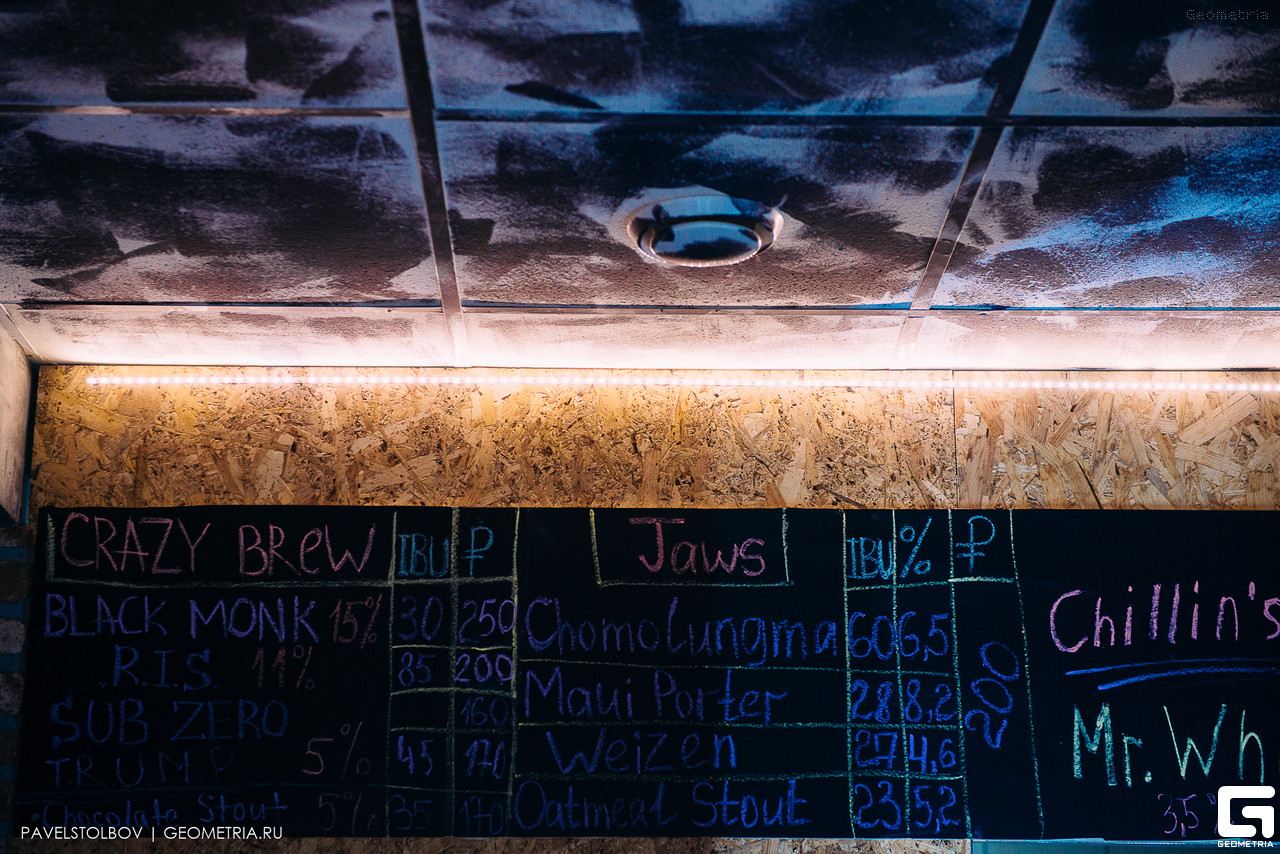 Geometria
CRAZY BREW IBU ₽
BLACK MONK 15% 30 250
R.I.S. 11% 85 200
SUB ZERO 160
T.R.U.M.P 5% 45 170
Chocolate Stout 5% 35 170
Jaws IBU % ₽
Chomolungma 60 6,5
Maui Porter 28 8,2
Weizen 27 4,6
Oatmeal Stout 23 5,2
200
Chillin's
Mr. Wh
3,5%
PAVELSTOLBOV | GEOMETRIA.RU
GEOMETRIA